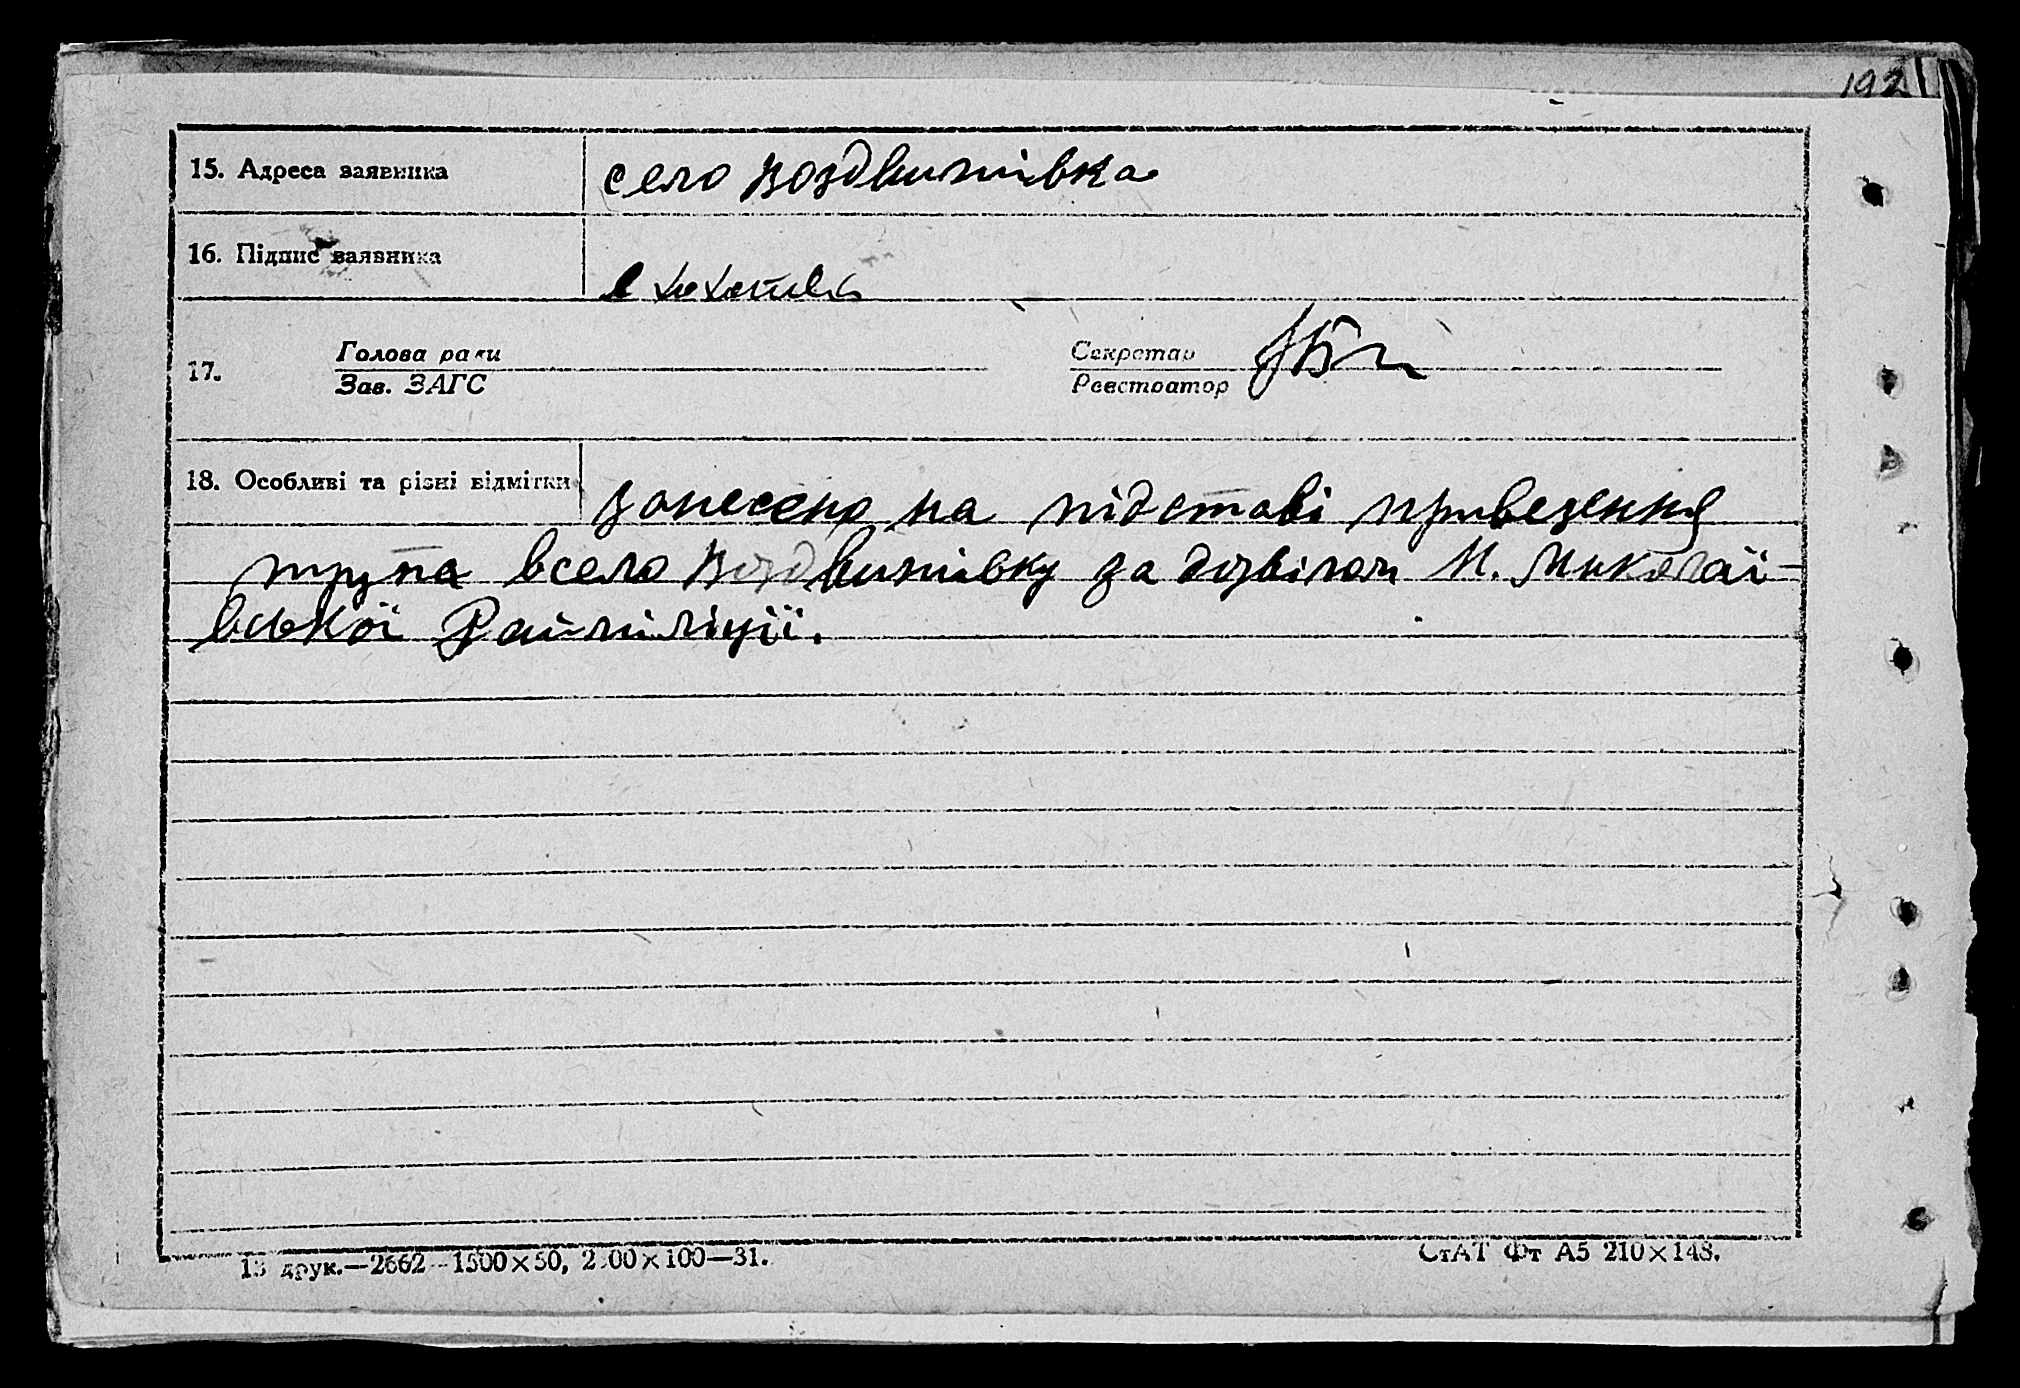 192
15. Адреса заявника
село Воздвижівка
16. Підпис заявника
17.
Голова ради
Зав. ЗАГС
Секретар
Реєстратор
18. Особливі та різні відмітки
занесено на підставі привезення
трупа всело Воздвижівку за дозвілом М. Миколаї-
вської Райміліції.
13 друк.—2662—1500×50, 2500×100—31.
СтАТ Фт А5 210×148.